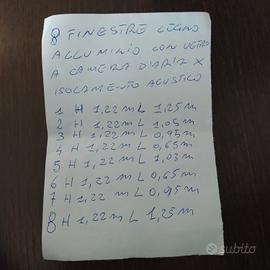 8 FINESTRE LEGNO
ALLUMINIO CON VETRO
A CAMERA D'ARIA X
ISOLAMENTO ACUSTICO
1 H 1,22 m L 1,25 m
2 H 1,22 m L 1,05 m
3 H 1,22 m L 0,95 m
4 H 1,22 m L 0,65 m
5 H 1,22 m L 1,03 m
6 H 1,22 m L 0,65 m
7 H 1,22 m L 0,95 m
8 H 1,22 m L 1,25 m
subito